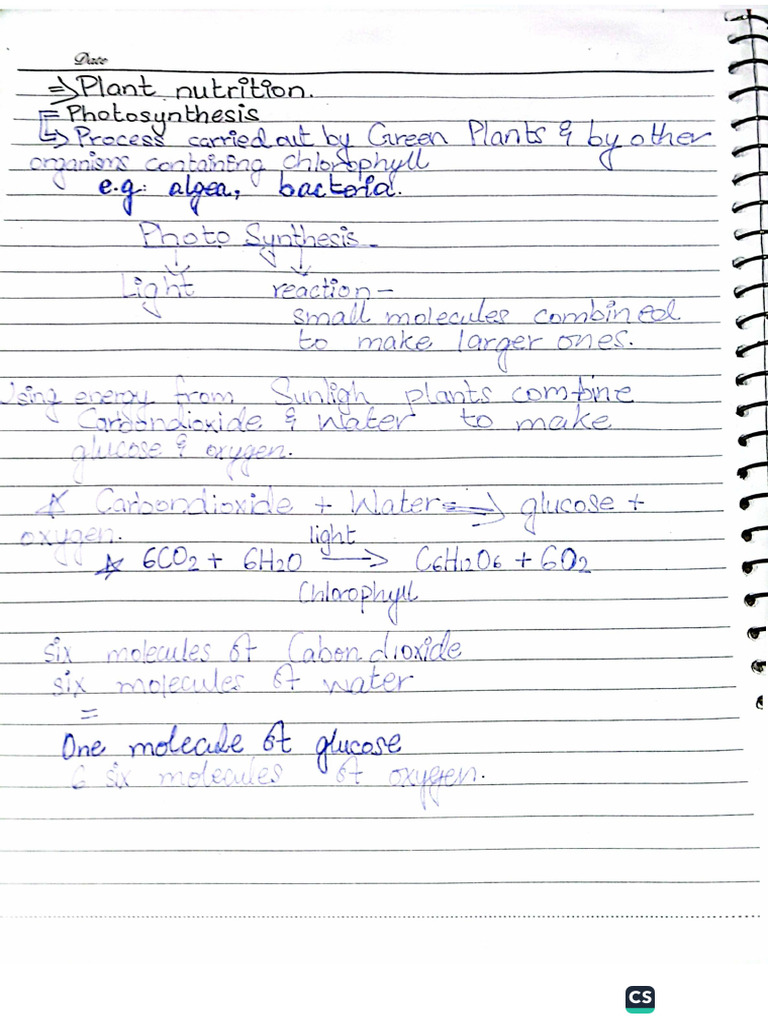 Date
=> Plant nutrition.
= Photosynthesis
↳ Process carried out by Green Plants & by other
organisms containing chlorophyll
e.g: algea, bacteria.
Photo Synthesis -
↓ ↓
Light reaction -
small molecules combined
to make larger ones.
Using energy from Sunligh plants combine
Carbondioxide & Water to make
glucose & oxygen.
☆ Carbondioxide + Water => glucose +
oxygen.
light
☆ 6CO2 + 6H2O → C6H12O6 + 6O2
Chlorophyll
six molecules of Cabondioxide
six molecules of water
=
One molecule of glucose
6 six molecules of oxygen.
CS